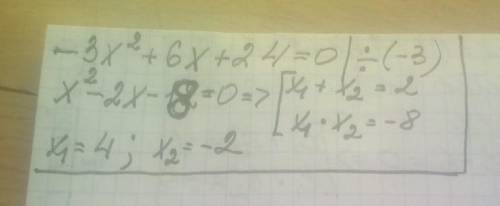 -3x² + 6x + 24 = 0 | ÷ (-3)
x² - 2x - 8 = 0 => [ x₁ + x₂ = 2
x₁ · x₂ = -8
x₁ = 4 ; x₂ = -2